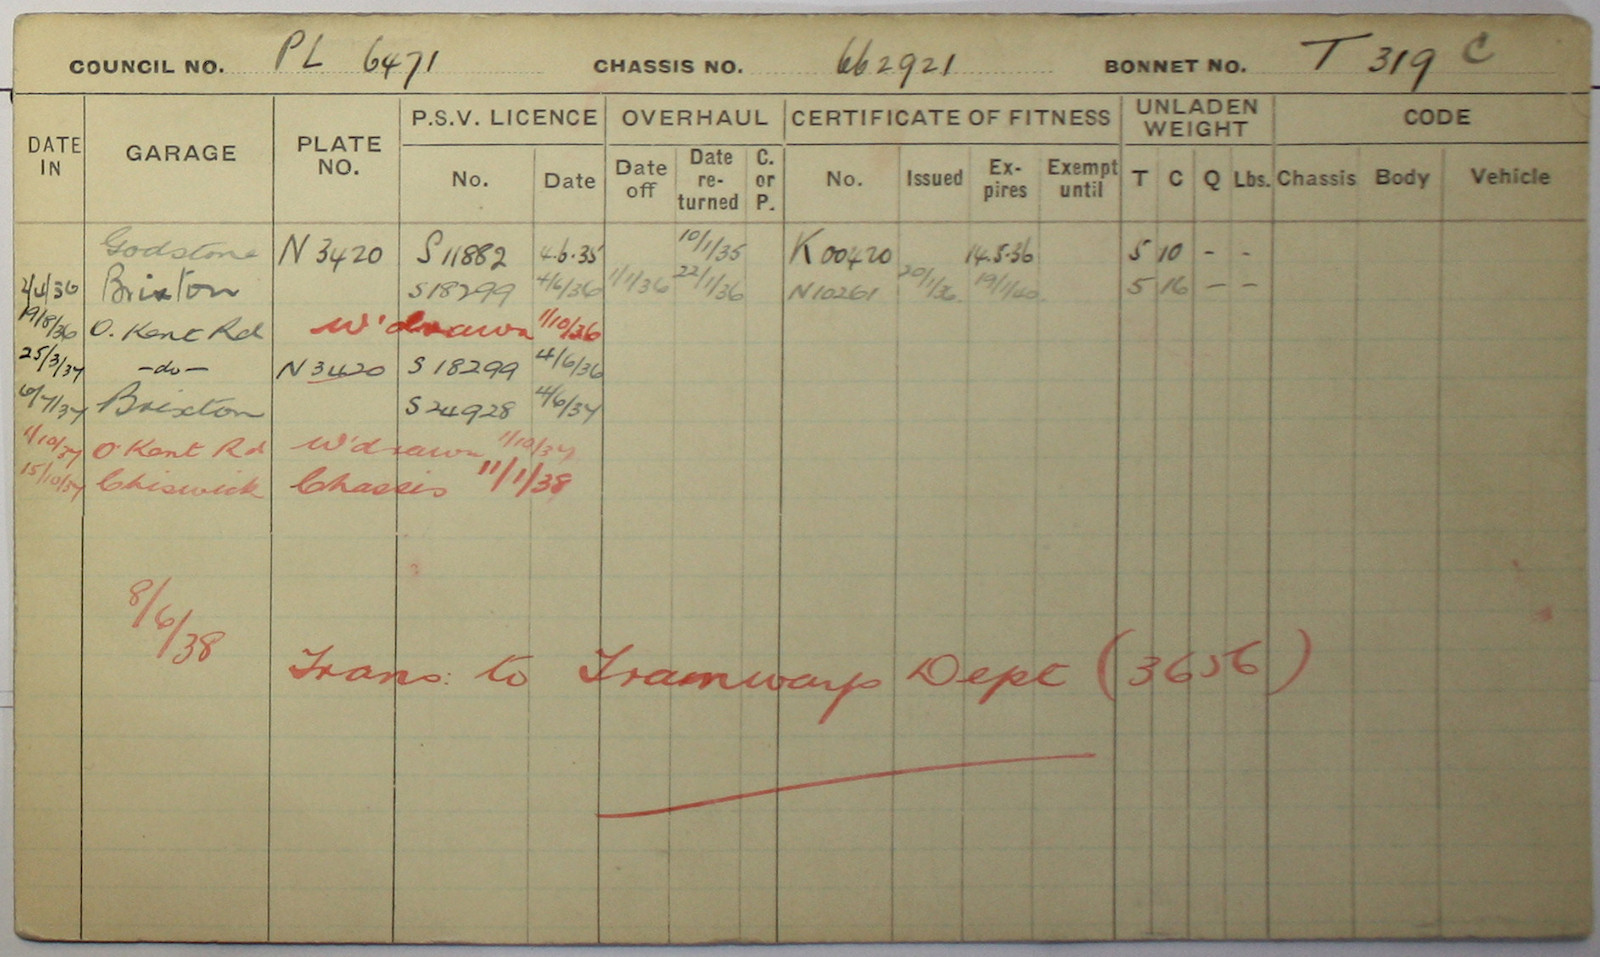 COUNCIL NO. PL 6471 CHASSIS NO. 662921 BONNET NO. T 319 C
DATE IN GARAGE PLATE NO. P.S.V. LICENCE OVERHAUL CERTIFICATE OF FITNESS UNLADEN WEIGHT CODE
No. Date Date off Date re-turned C. or P. No. Issued Ex-pires Exempt until T C Q Lbs. Chassis Body Vehicle
Godstone N 3420 S 11882 4.6.35 10/1/35 K 00420 14.5.36 5 10 - -
2/4/36 Brixton S 18299 4/6/36 1/1/36 22/1/36 N 10261 20/1/36 19/1/40 5 16 - -
19/8/36 O. Kent Rd W'drawn 1/10/36
25/3/37 -do- N 3420 S 18299 4/6/36
6/7/37 Brixton S 24928 4/6/37
1/10/37 O Kent Rd W'drawn 1/10/37
15/10/37 Chiswick Chassis 11/1/38
8/6/38
Trans: to Tramways Dept (3656)